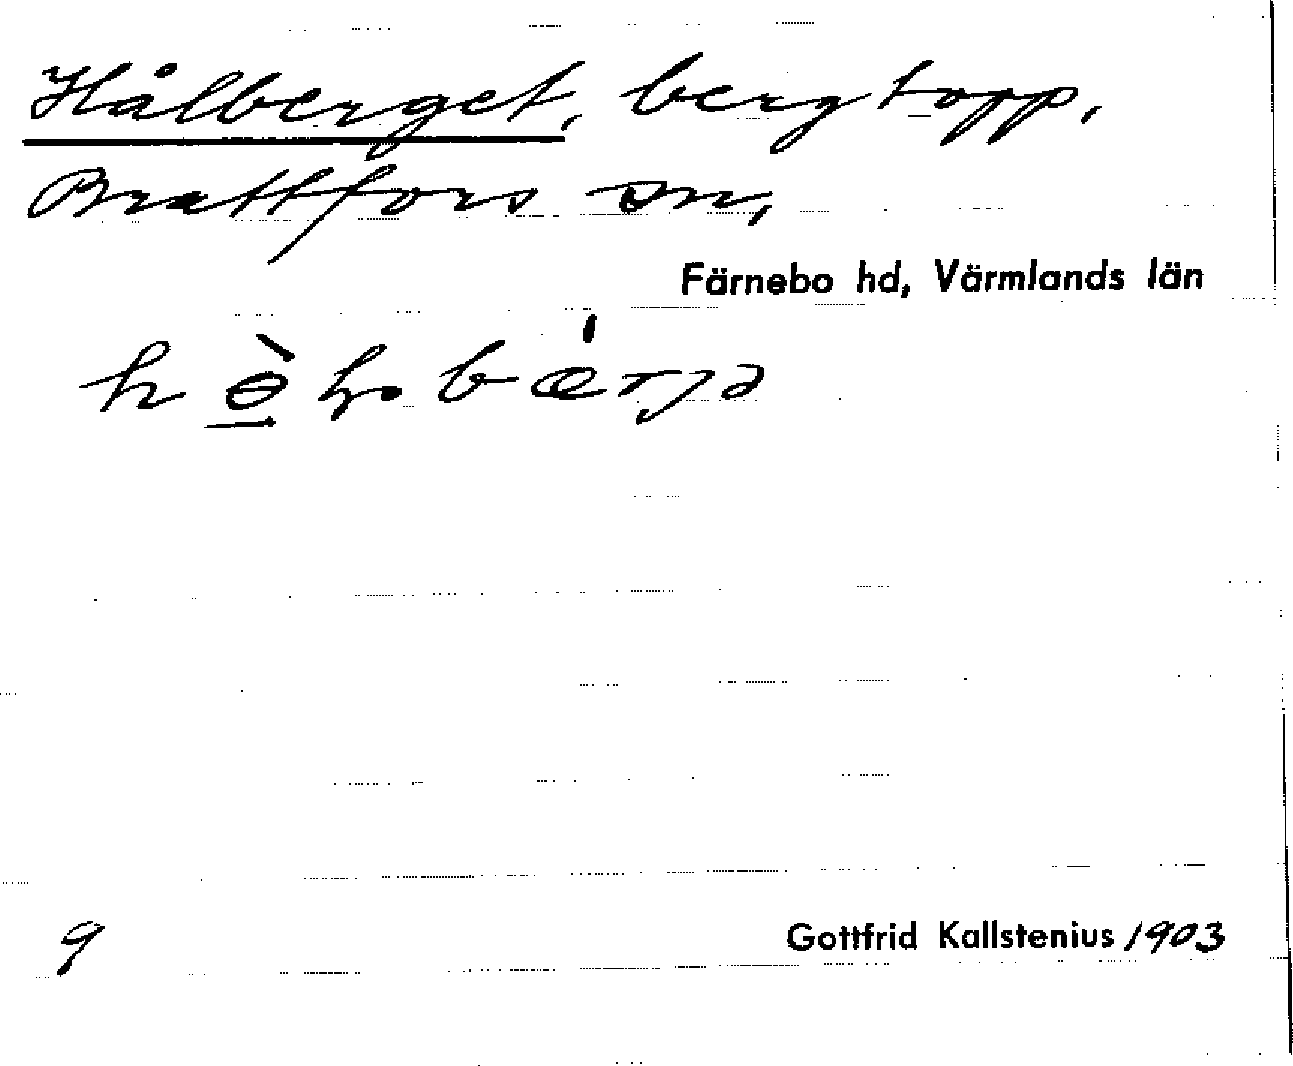 Hålberget, bergtopp,
Brattfors sn,
Färnebo hd, Värmlands län
9
Gottfrid Kallstenius 1903